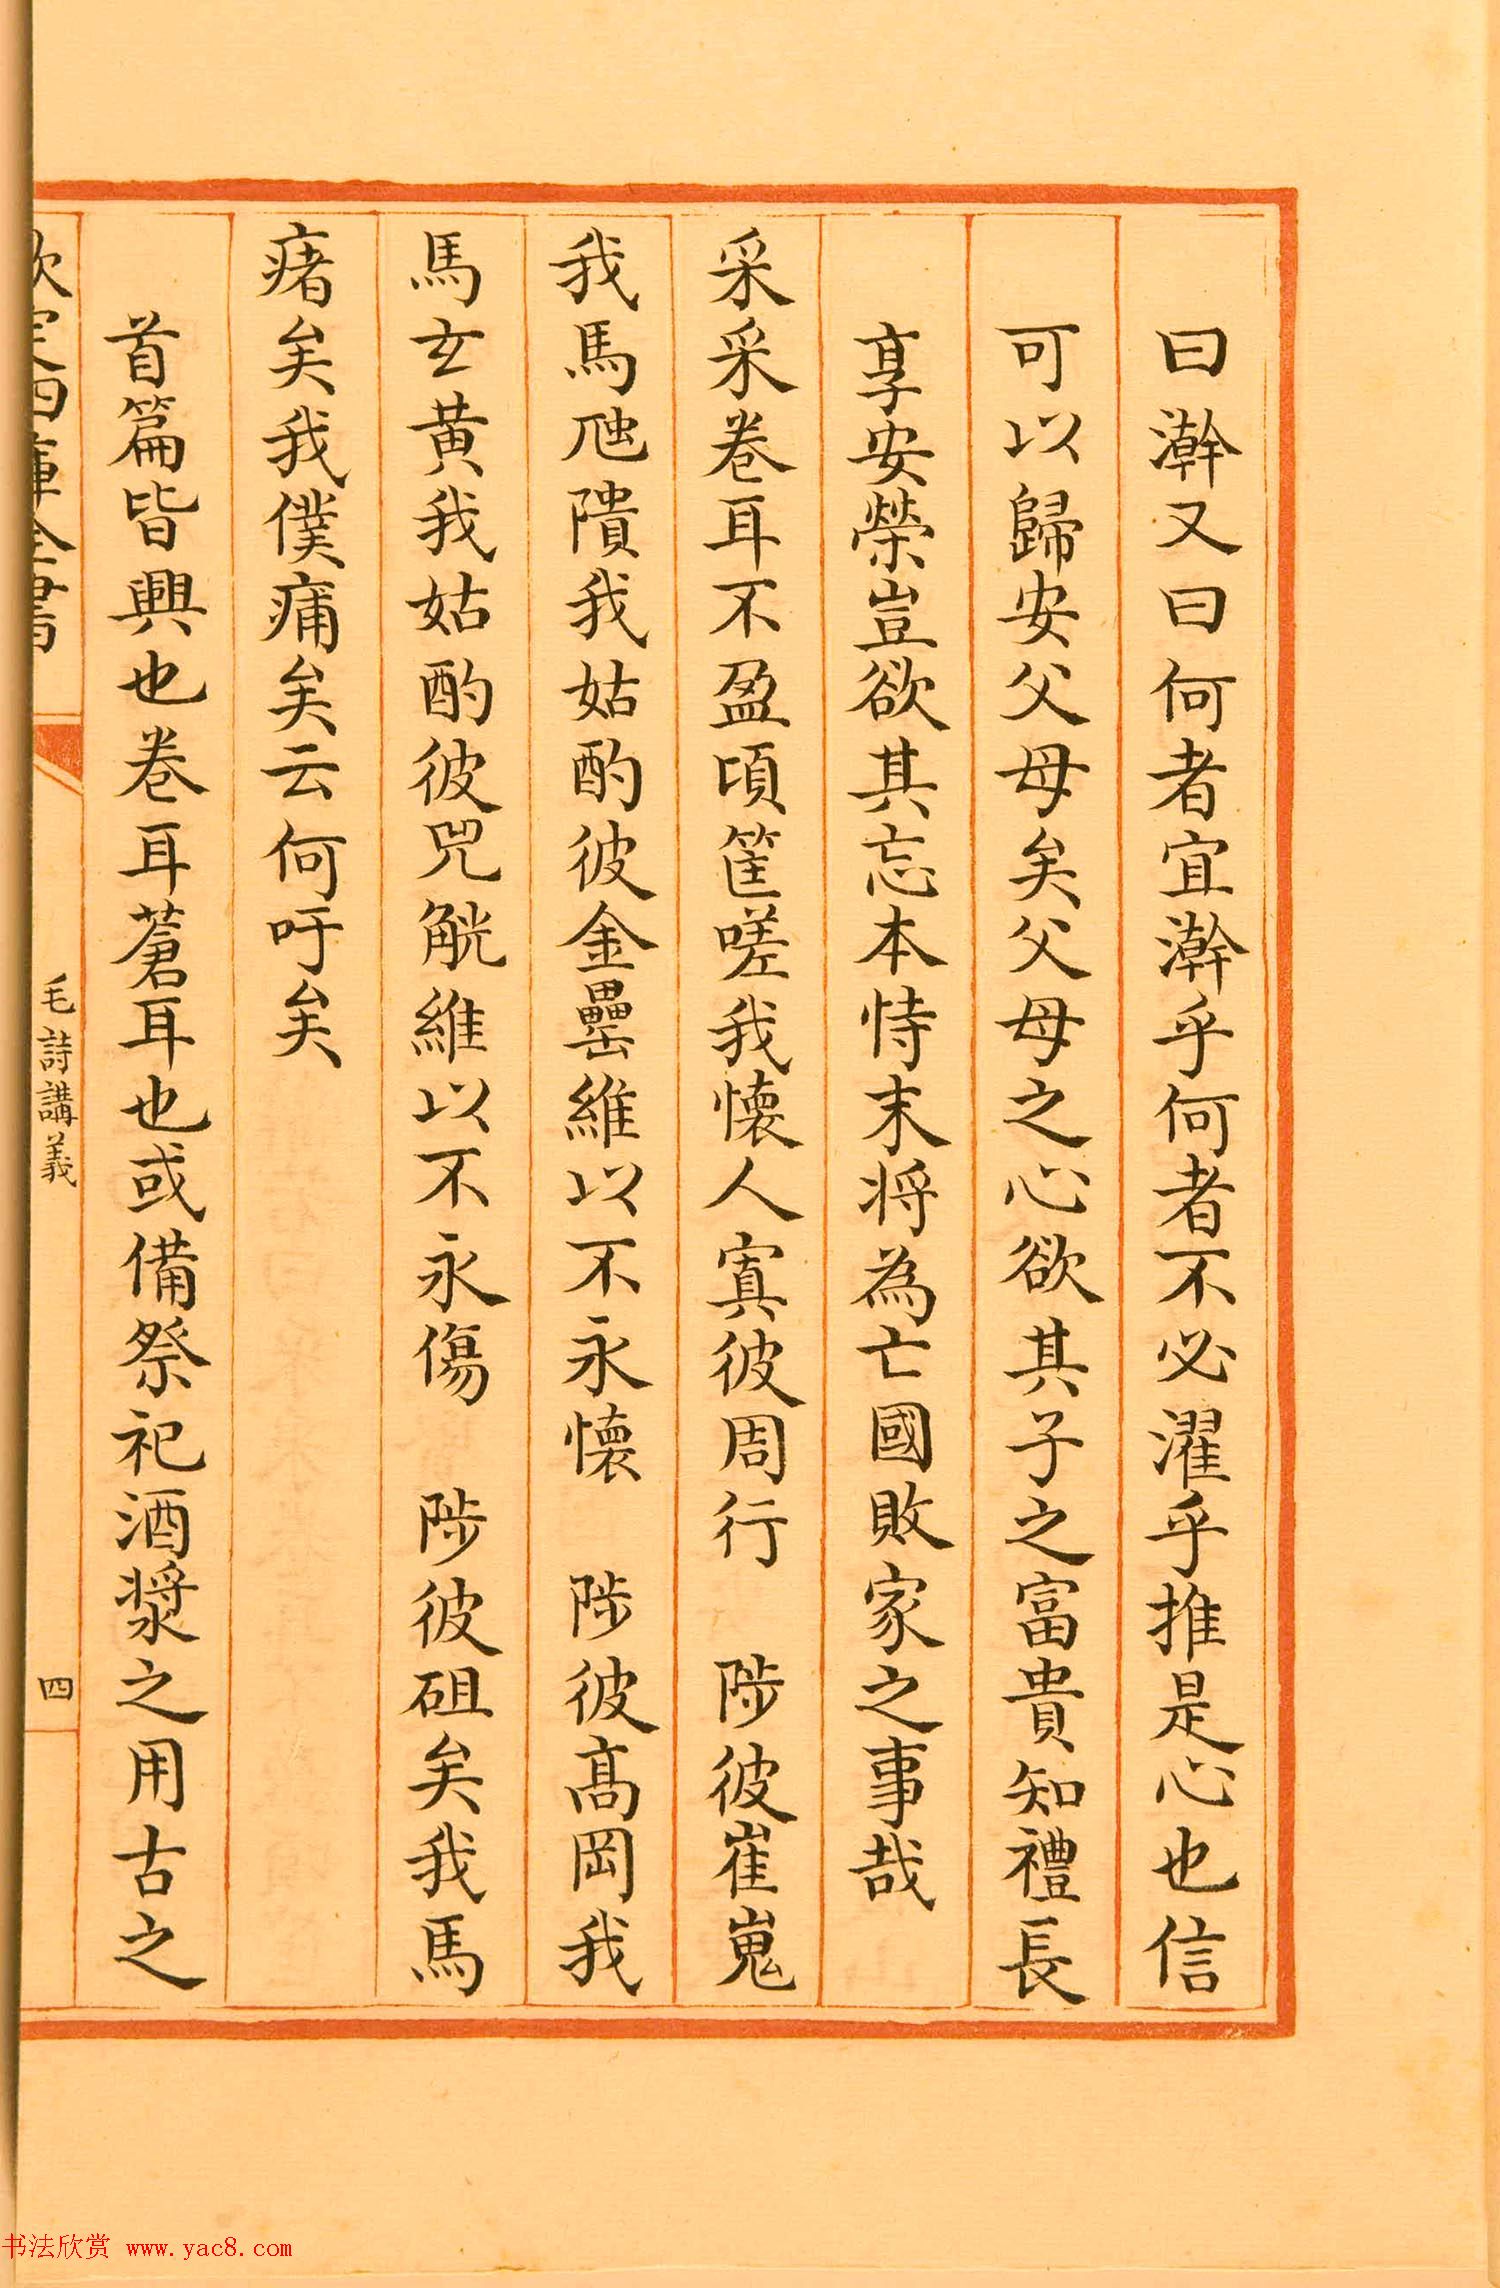 曰澣又曰何者宜澣乎何者不必濯乎推是心也信
可以歸安父母矣父母之心欲其子之富貴知禮長
享安榮豈欲其忘本恃末将為亡國敗家之事哉
采采卷耳不盈頃筐嗟我懐人寘彼周行　陟彼崔嵬
我馬虺隤我姑酌彼金罍維以不永懐　陟彼髙岡我
馬玄黄我姑酌彼兕觥維以不永傷　陟彼砠矣我馬
瘏矣我僕痡矣云何吁矣
首篇皆興也卷耳蒼耳也或備祭祀酒漿之用古之
欽定四庫全書
毛詩講義
四
书法欣赏 www.yac8.com